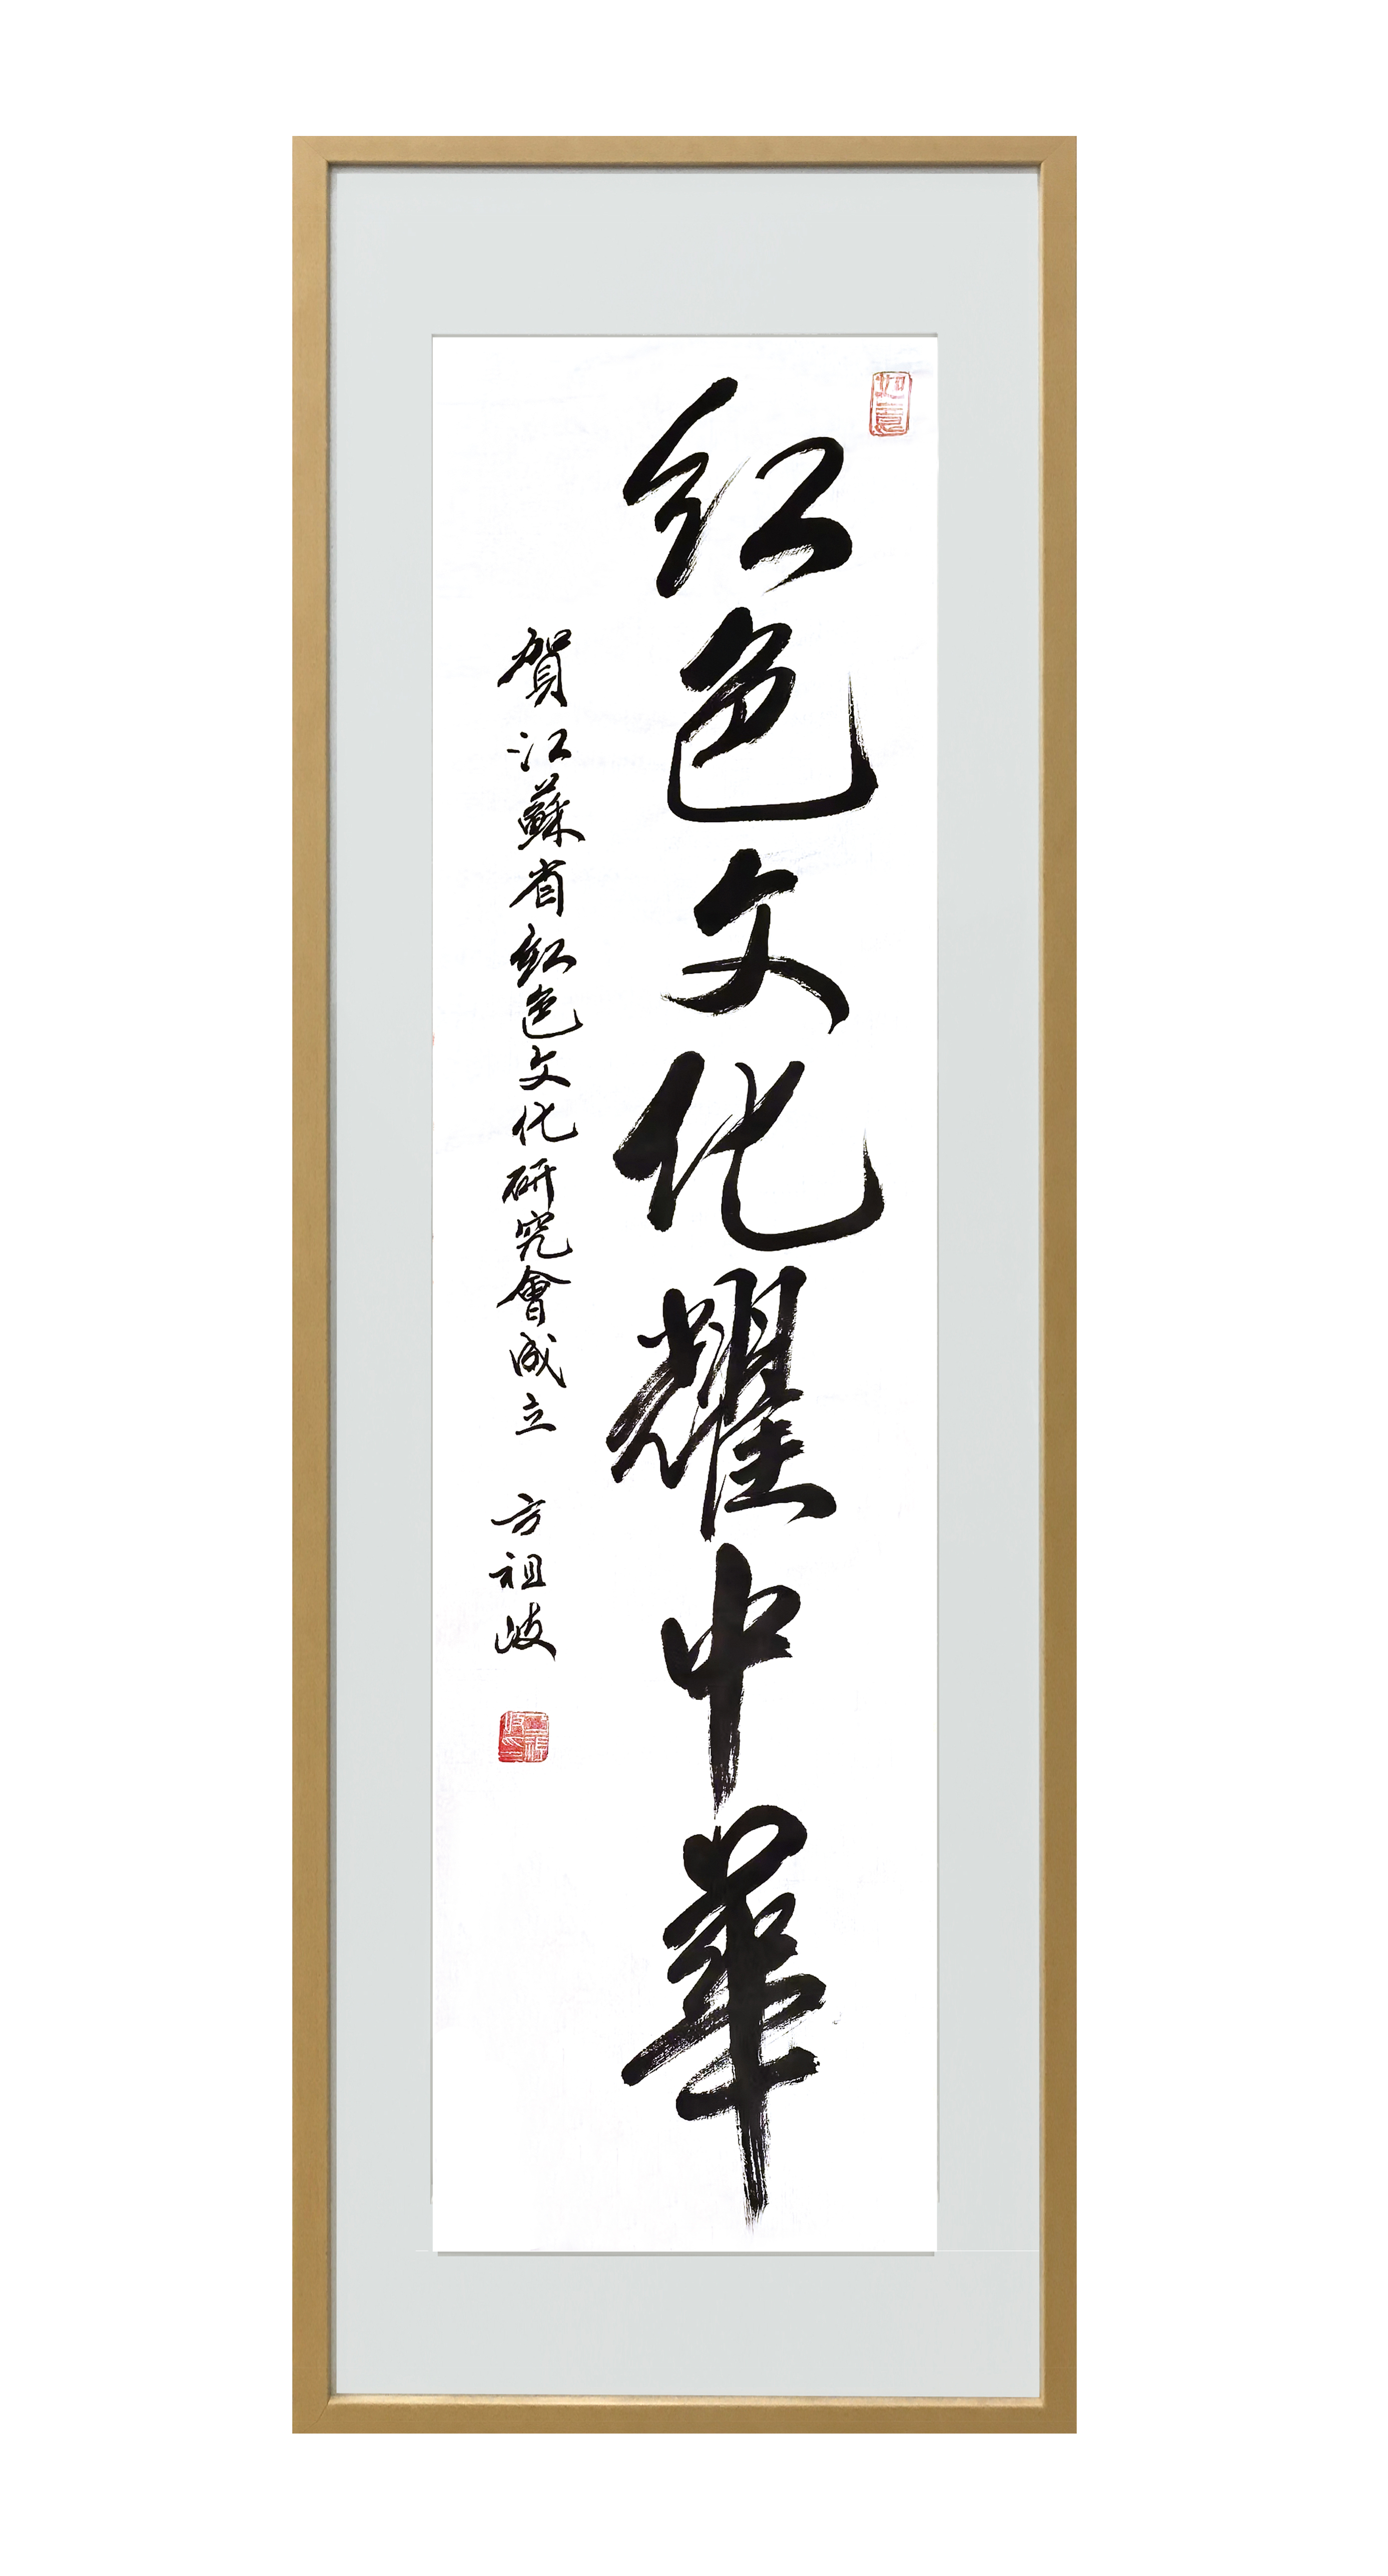 红色文化耀中華
賀江蘇省紅色文化研究會成立 方祖岐